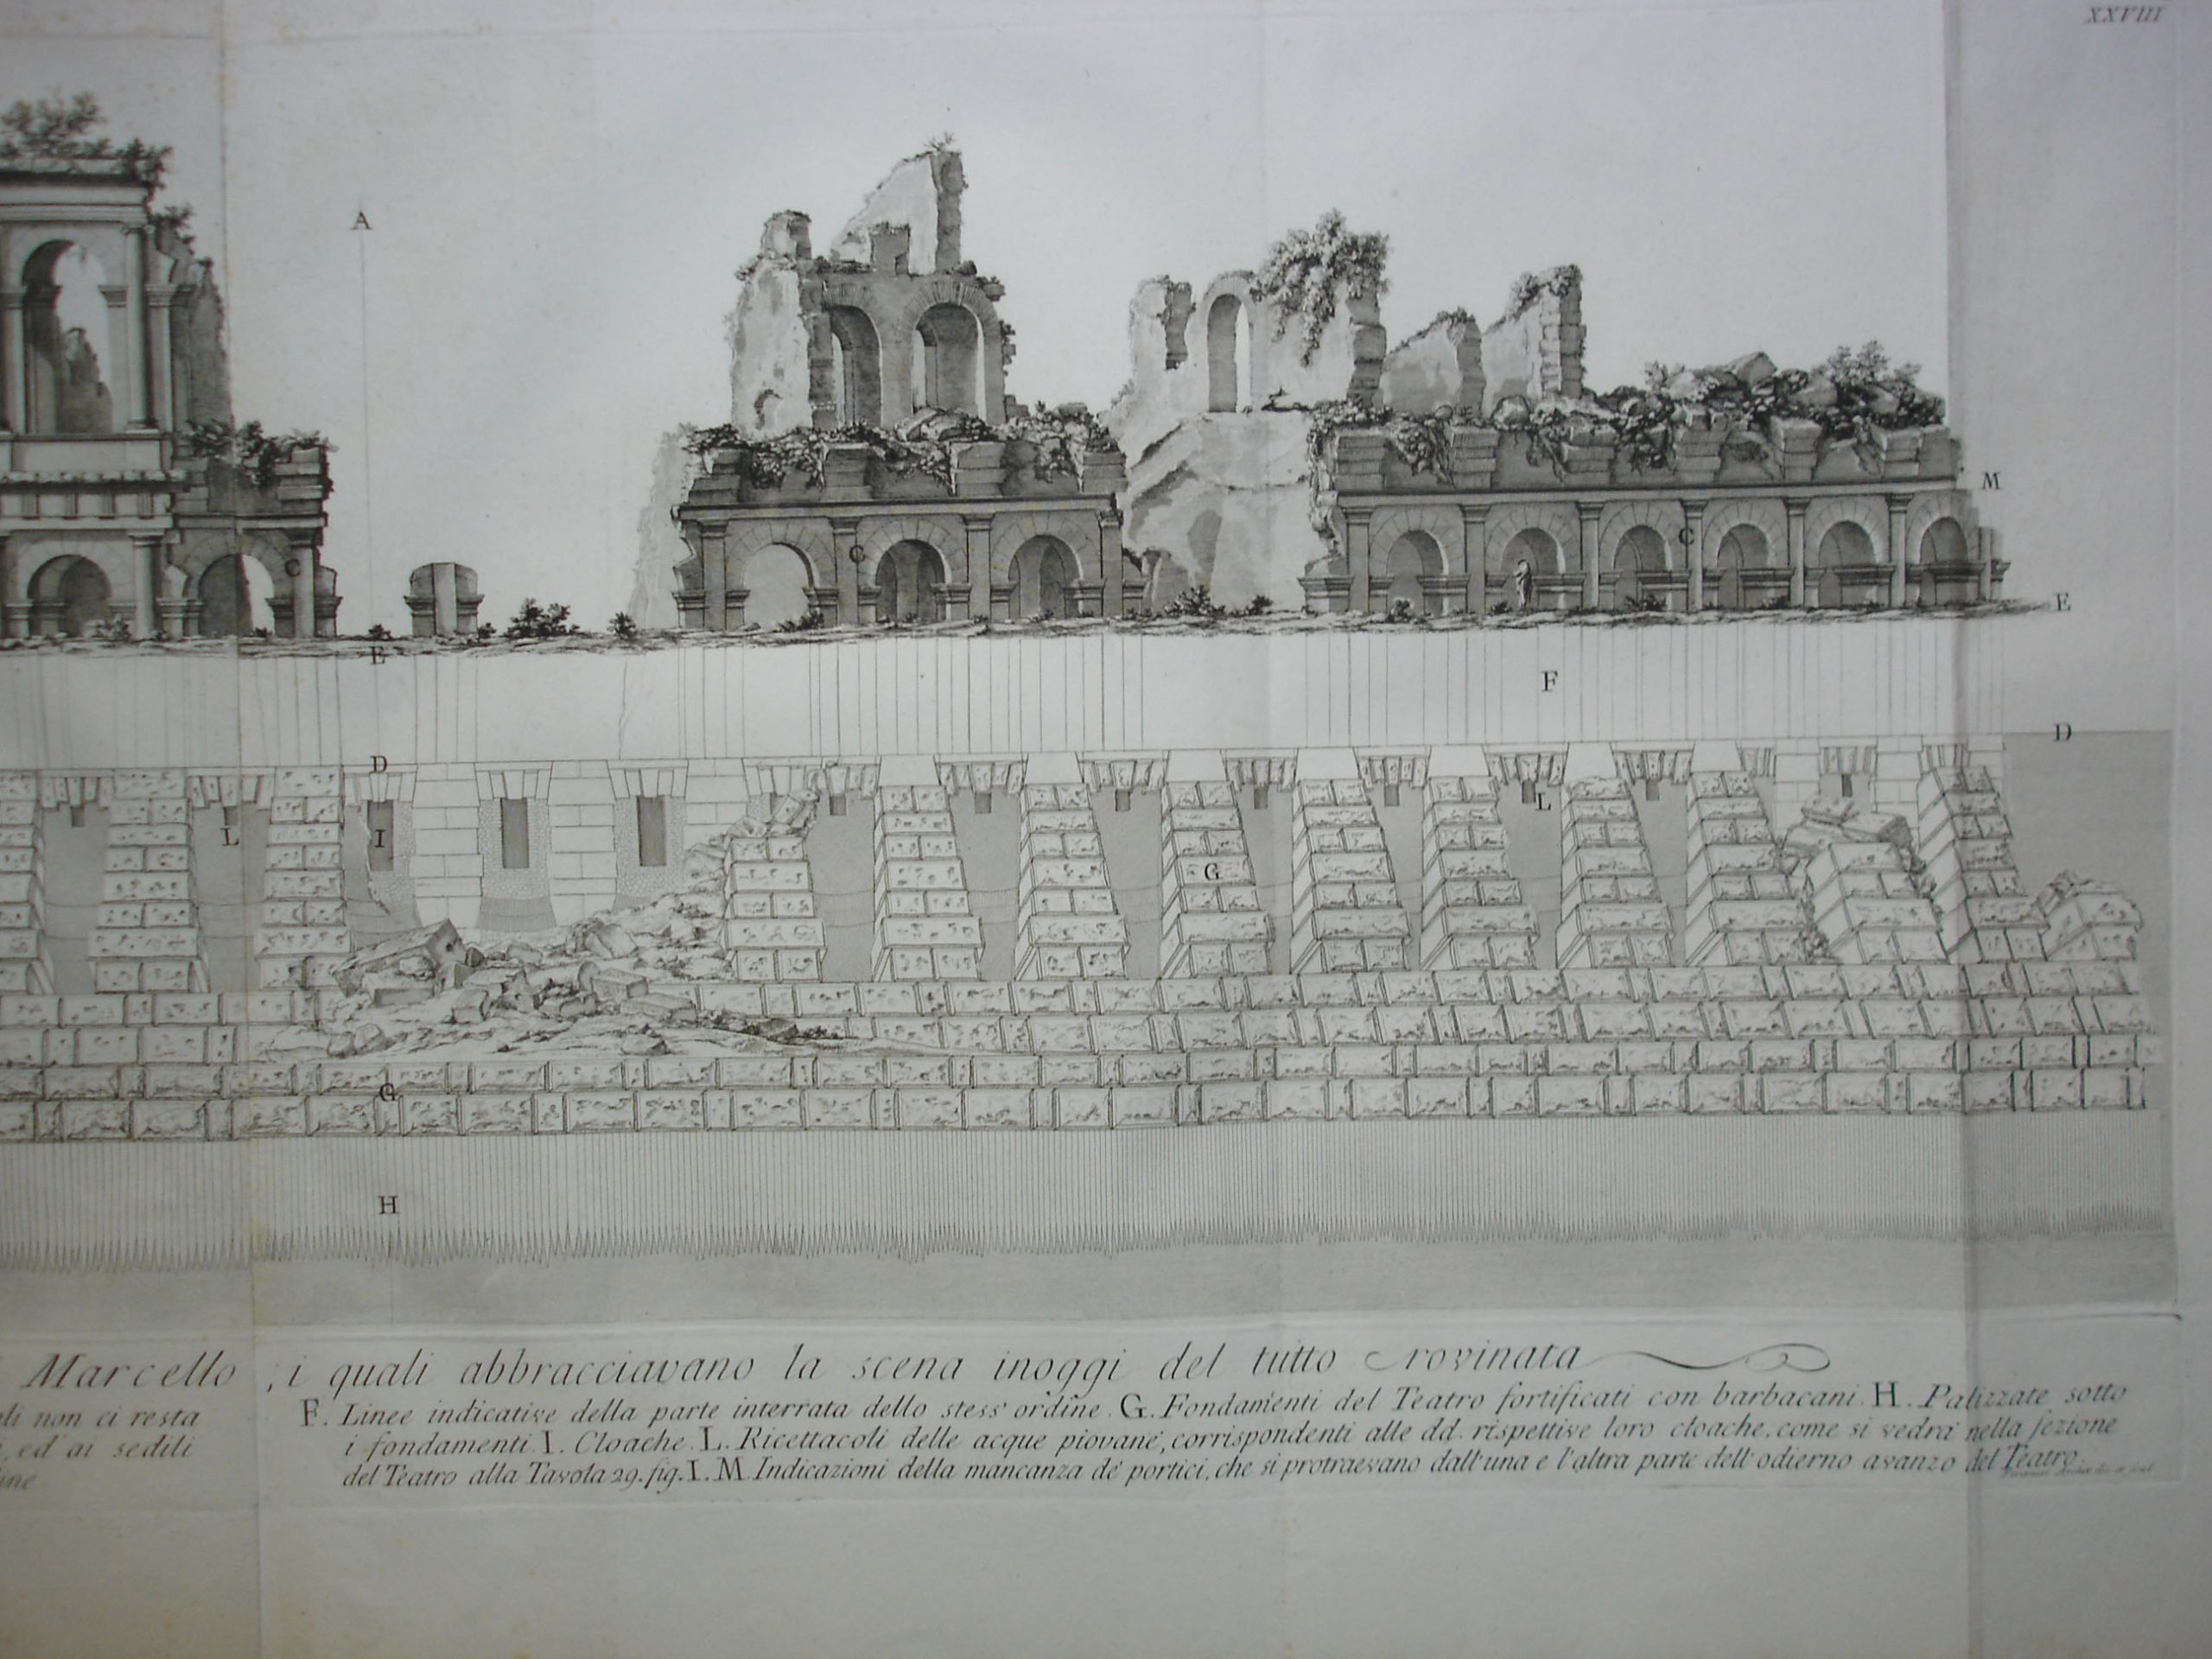 XXVIII
A
M
C
C
C
E
E
F
D
D
L
L
I
G
G
H
Marcello ; i quali abbracciavano la scena inoggi del tutto rovinata
li non ci resta
, ed' ai sedili
ine
F. Linee indicative della parte interrata dello stess' ordine. G. Fondamenti del Teatro fortificati con barbacani. H. Palizzate sotto
i fondamenti. I. Cloache. L. Ricettacoli delle acque piovane, corrispondenti alle dd. rispettive loro cloache, come si vedrà nella sezione
del Teatro alla Tavola 29. fig. I. M. Indicazioni della mancanza de' portici, che si protraevano dall'una e l'altra parte dell'odierno avanzo del Teatro.